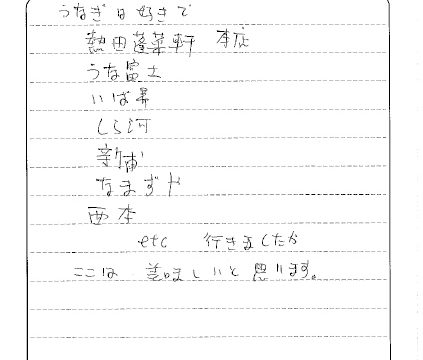 うなぎは好きで
熱田蓬莱軒 本店
うな富士
いば昇
しら河
西本
etc 行きましたが
ここは 美味しいと思います。